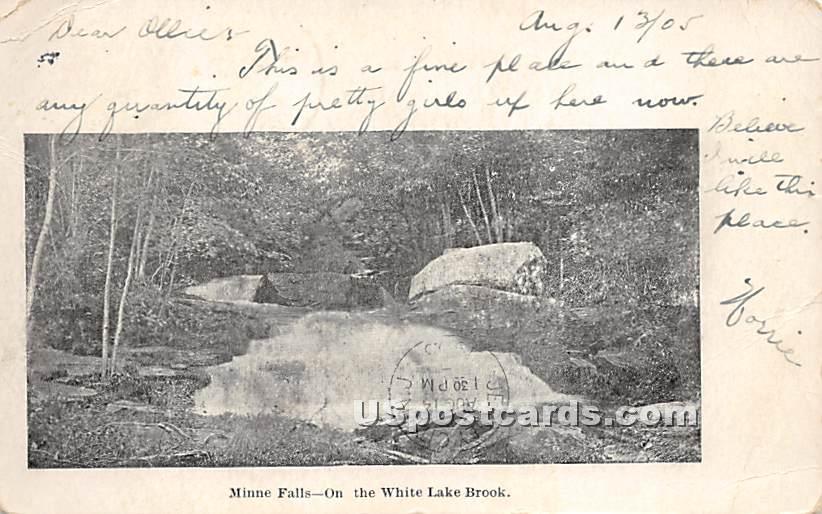 Aug. 13/05
Dear Ollie
This is a fine place and there are
any quantity of pretty girls up here now.
Believe
I will
like this
place.
Horrie
AUG 15
1 30 PM
USpostcards.com
Minne Falls—On the White Lake Brook.